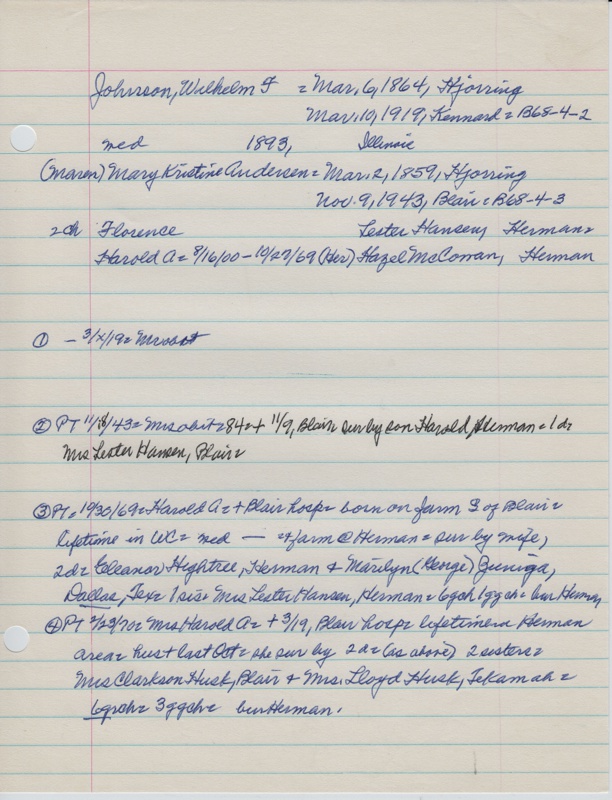 Johnson, Wilhelm F = Mar, 6, 1864, Hjorring
Mar, 10, 1919, Kennard = B68-4-2
med 1893, Illinois
(Maren) Mary Kristine Andersen = Mar. 2, 1859, Hjorring
Nov. 9, 1943, Blair = B68-4-3
2ch Florence Lester Hansen, Herman=
Harold A = 8/16/00 - 10/27/69 (Her) Hazel McCowan, Herman
① - 3/x/19 =
② PT 11/18/43 = Mrs obit = 84 = + 11/9, Blair = sur by son Harold, Herman = 1 d =
Mrs Lester Hansen, Blair =
③ PT = 10/30/69 = Harold A = + Blair hosp = born on farm S of Blair =
lifetime in WC = med — = + farm @ Herman = sur by wife,
2d = Eleanor Hightree, Herman + Marilyn (George) Zuniga,
Dallas, Tex = 1 sis = Mrs Lester Hansen, Herman = 6gch 1ggch = bur Herman
④ PT 3/23/70 = Mrs Harold A = + 3/19, Blair hosp = lifetime in Herman
area = hus + last Oct = she sur by 2d = (as above) 2 sisters =
Mrs Clarkson Husk, Blair + Mrs. Lloyd Husk, Tekamah =
6grch = 3ggch = bur Herman.